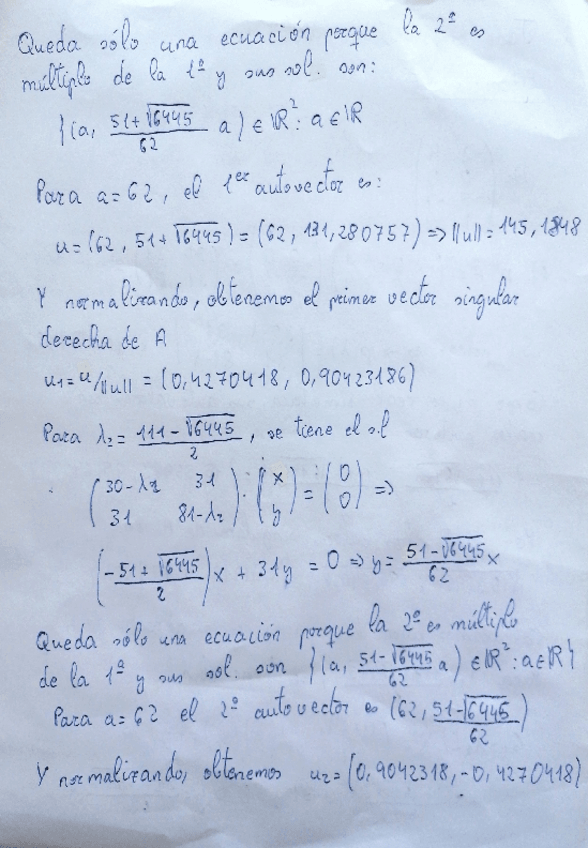 Queda sólo una ecuación porque la 2ª es
múltiplo de la 1ª y sus sol. son:
{(a, (51+√6445)/62 a) ∈ ℝ²: a ∈ ℝ
Para a=62, el 1er autovector es:
u=(62, 51+√6445)=(62, 131,280757)⇒||u||=145,1848
Y normalizando, obtenemos el primer vector singular
derecha de A
u1=u/||u|| = (0,4270418, 0,90423186)
Para λ2= (111-√6445)/2, se tiene el s.l
(30-λ2 31; 31 81-λ2)·(x; y)=(0; 0) ⇒
((-51+√6445)/2)x + 31y = 0 ⇒ y= (51-√6445)/62 x
Queda sólo una ecuación porque la 2ª es múltiplo
de la 1ª y sus sol. son {(a, (51-√6445)/62 a) ∈ ℝ²: a∈ℝ}
Para a=62 el 2º autovector es (62, (51-√6445)/62)
Y normalizando, obtenemos u2=(0,9042318,-0,4270418)